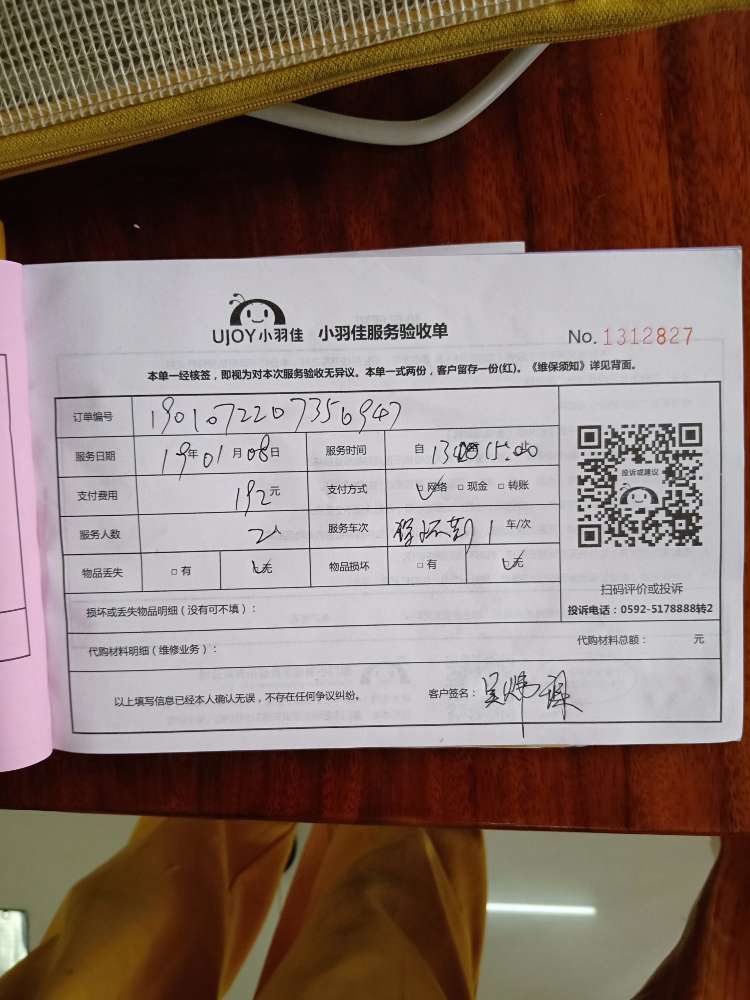 UJOY小羽佳 小羽佳服务验收单 No. 1312827
本单一经核签，即视为对本次服务验收无异议。本单一式两份，客户留存一份(红)。《维保须知》详见背面。
订单编号 1901072207356947
服务日期 19年01月08日 服务时间 自 止
支付费用 192元 支付方式 □网络 □现金 □转账
服务人数 2人 服务车次 1 车/次
物品丢失 □有 □无 物品损坏 □有 □无
投诉或建议
扫码评价或投诉
投诉电话：0592-5178888转2
损坏或丢失物品明细（没有可不填）：
代购材料明细（维修业务）： 代购材料总额： 元
以上填写信息已经本人确认无误，不存在任何争议纠纷。 客户签名：